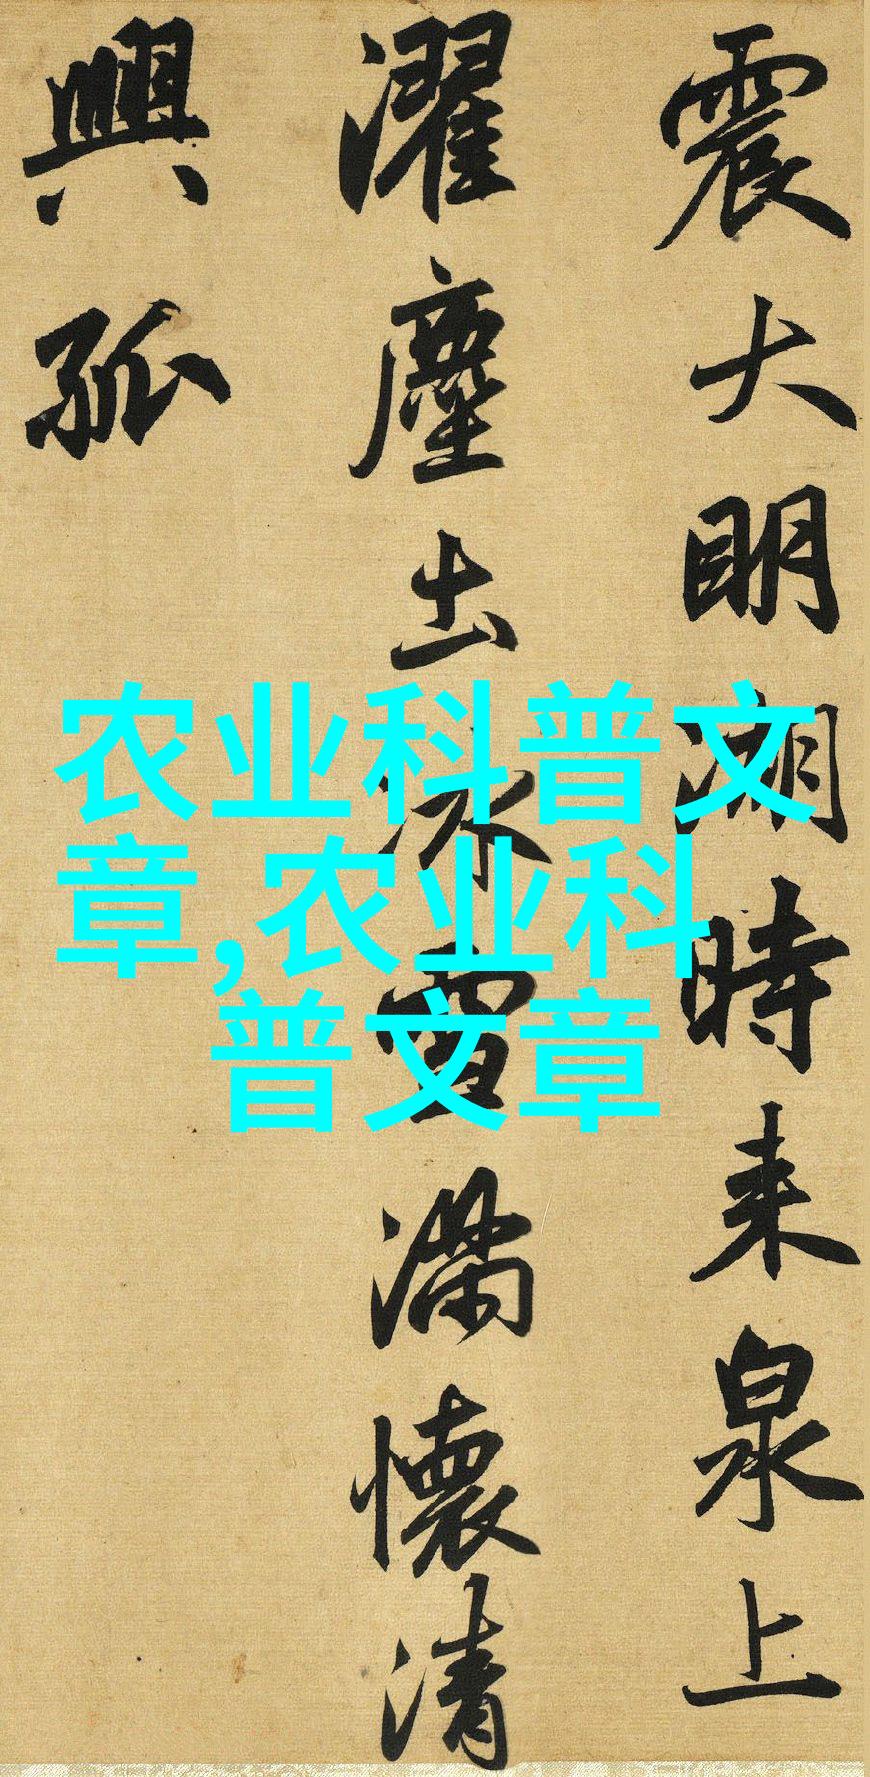 震大明湖時来泉上
濯塵出冰雪滿懷清
興孤
农业科普文
章,农业科
普文章